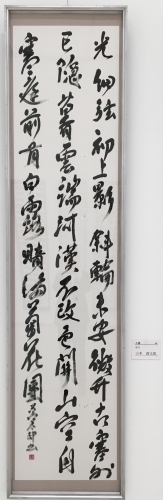 光細弦初上影斜輪未安微升古塞外
已隱暮雲端河漢不改色關山空自
寒庭前有白露暗滿菊花團